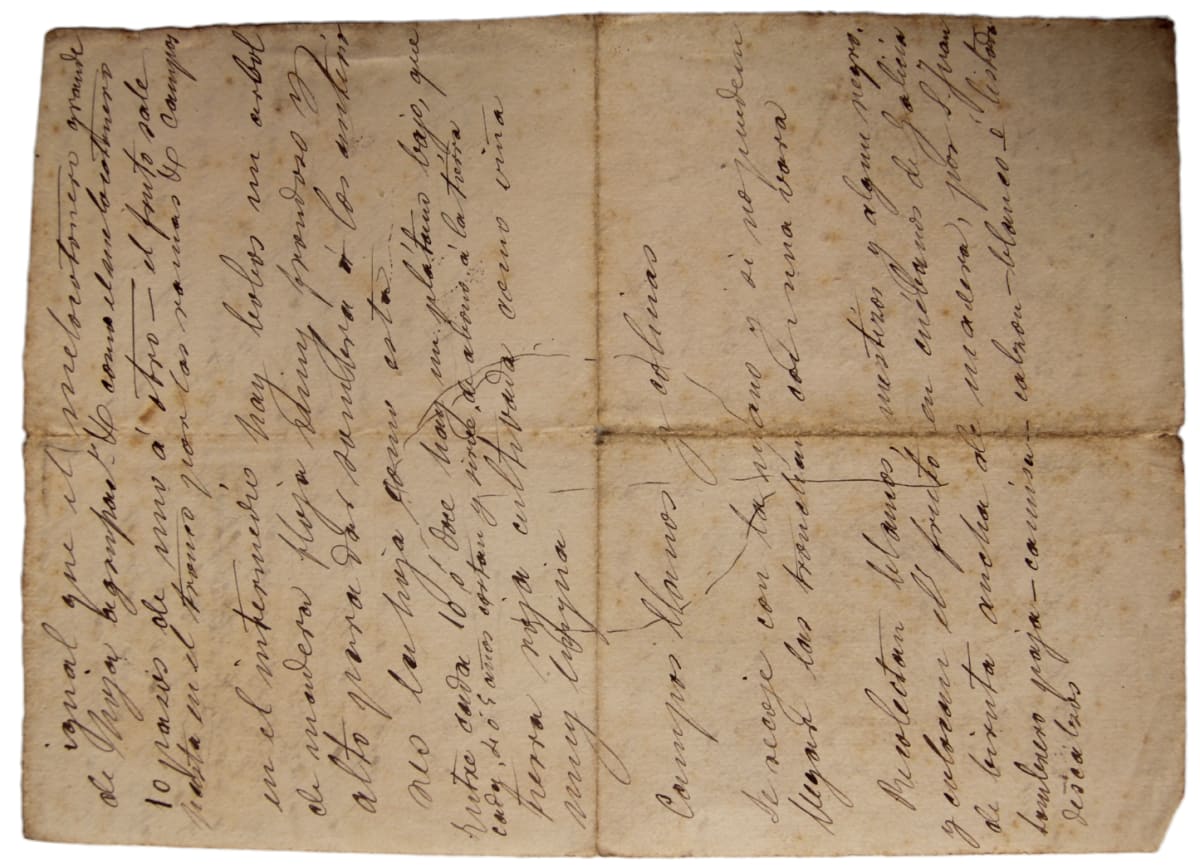 igual que el melocotonero grande
de hoja agrupad & como el melocotonero
10 pasos de uno á otro — el fruto sale
hasta en el tronco por las ramas & campos
en el intermedio hay bobos un arbol
de madera floja y muy frondoso y
alto para dar sombra á los anterio
res la hoja como esta
entre cada 10 ó doce hay un plátano bajo, que
cada 4 ó 5 años cortan y sirve de abono á la tierra
tierra roja cultivada como viña
muy limpia
Campos llanos y colinas
Se recoje con la mano y si no pueden
llegar las tronchan con una vara
Recolectan blancos, mestizos y algun negro.
y colocan el fruto en cuébanos de Galicia
de biruta ancha de madera, por S. Juan
sombrero paja — camisa — calzon — blanco ó listado
descalzos